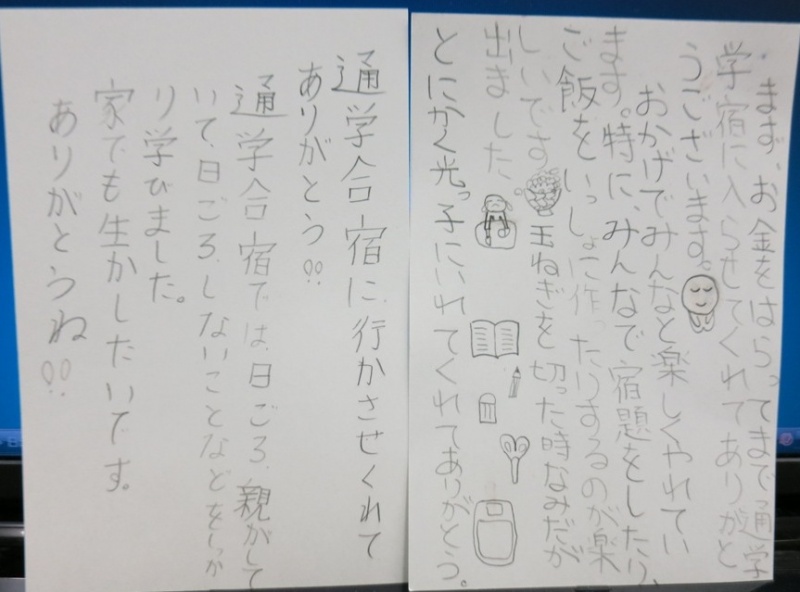 まず、お金をはらってまで通学
学宿に入らせてくれてありがと
うございます。
おかげでみんなと楽しくやれてい
ます。特に、みんなで宿題をしたり、
ご飯をいっしょに作ったりするのが楽
しいです。玉ねぎを切った時なみだが
出ました。
とにかく光っ子にいれてくれてありがとう。
通学合宿に行かさせくれて
ありがとう!!
通学合宿では、日ごろ、親がして
いて、日ごろ、しないことなどをしっか
り学びました。
家でも生かしたいです。
ありがとうね!!